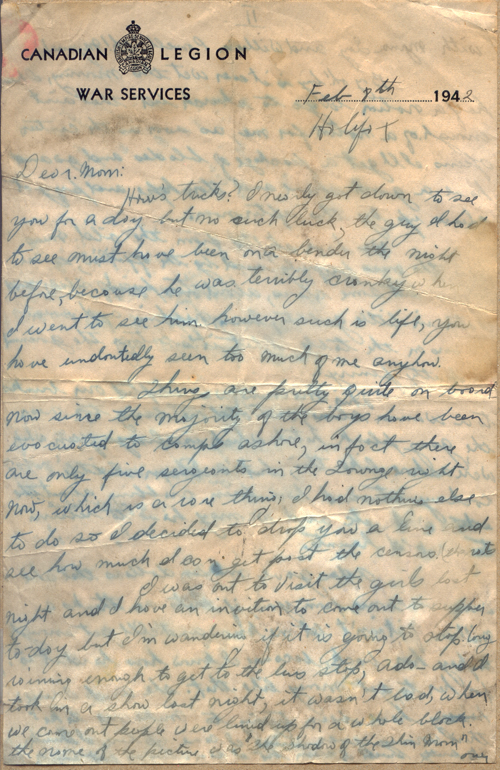 CANADIAN LEGION
WAR SERVICES
Feb 8th 1942
Halifax
Dear Mom:
How's tricks? I nearly got down to see
you for a day but no such luck, the guy I had
to see must have been on a bender the night
before, because he was terribly cranky whe
I went to see him however such is life, you
have undoutedly seen too much of me anyhow.
Things are pretty quite on board
now since the majority of the boys have been
evacuated to camps ashore, infact there
are only five sergeants in the Lounge right
now, which is a rare thing; I had nothing else
to do so I decided to drop you a line and
see how much I can get past the censors,
I was out to visit the girls last
night and I have an invition to come out to supper
today but I'm wandering if it is going to stop
raining enough to get to the bus stop, and I
took in a show last night, it wasn't bad, when
we came out people were lined up for a whole block.
the name of the picture was "the shadow of the thin man"